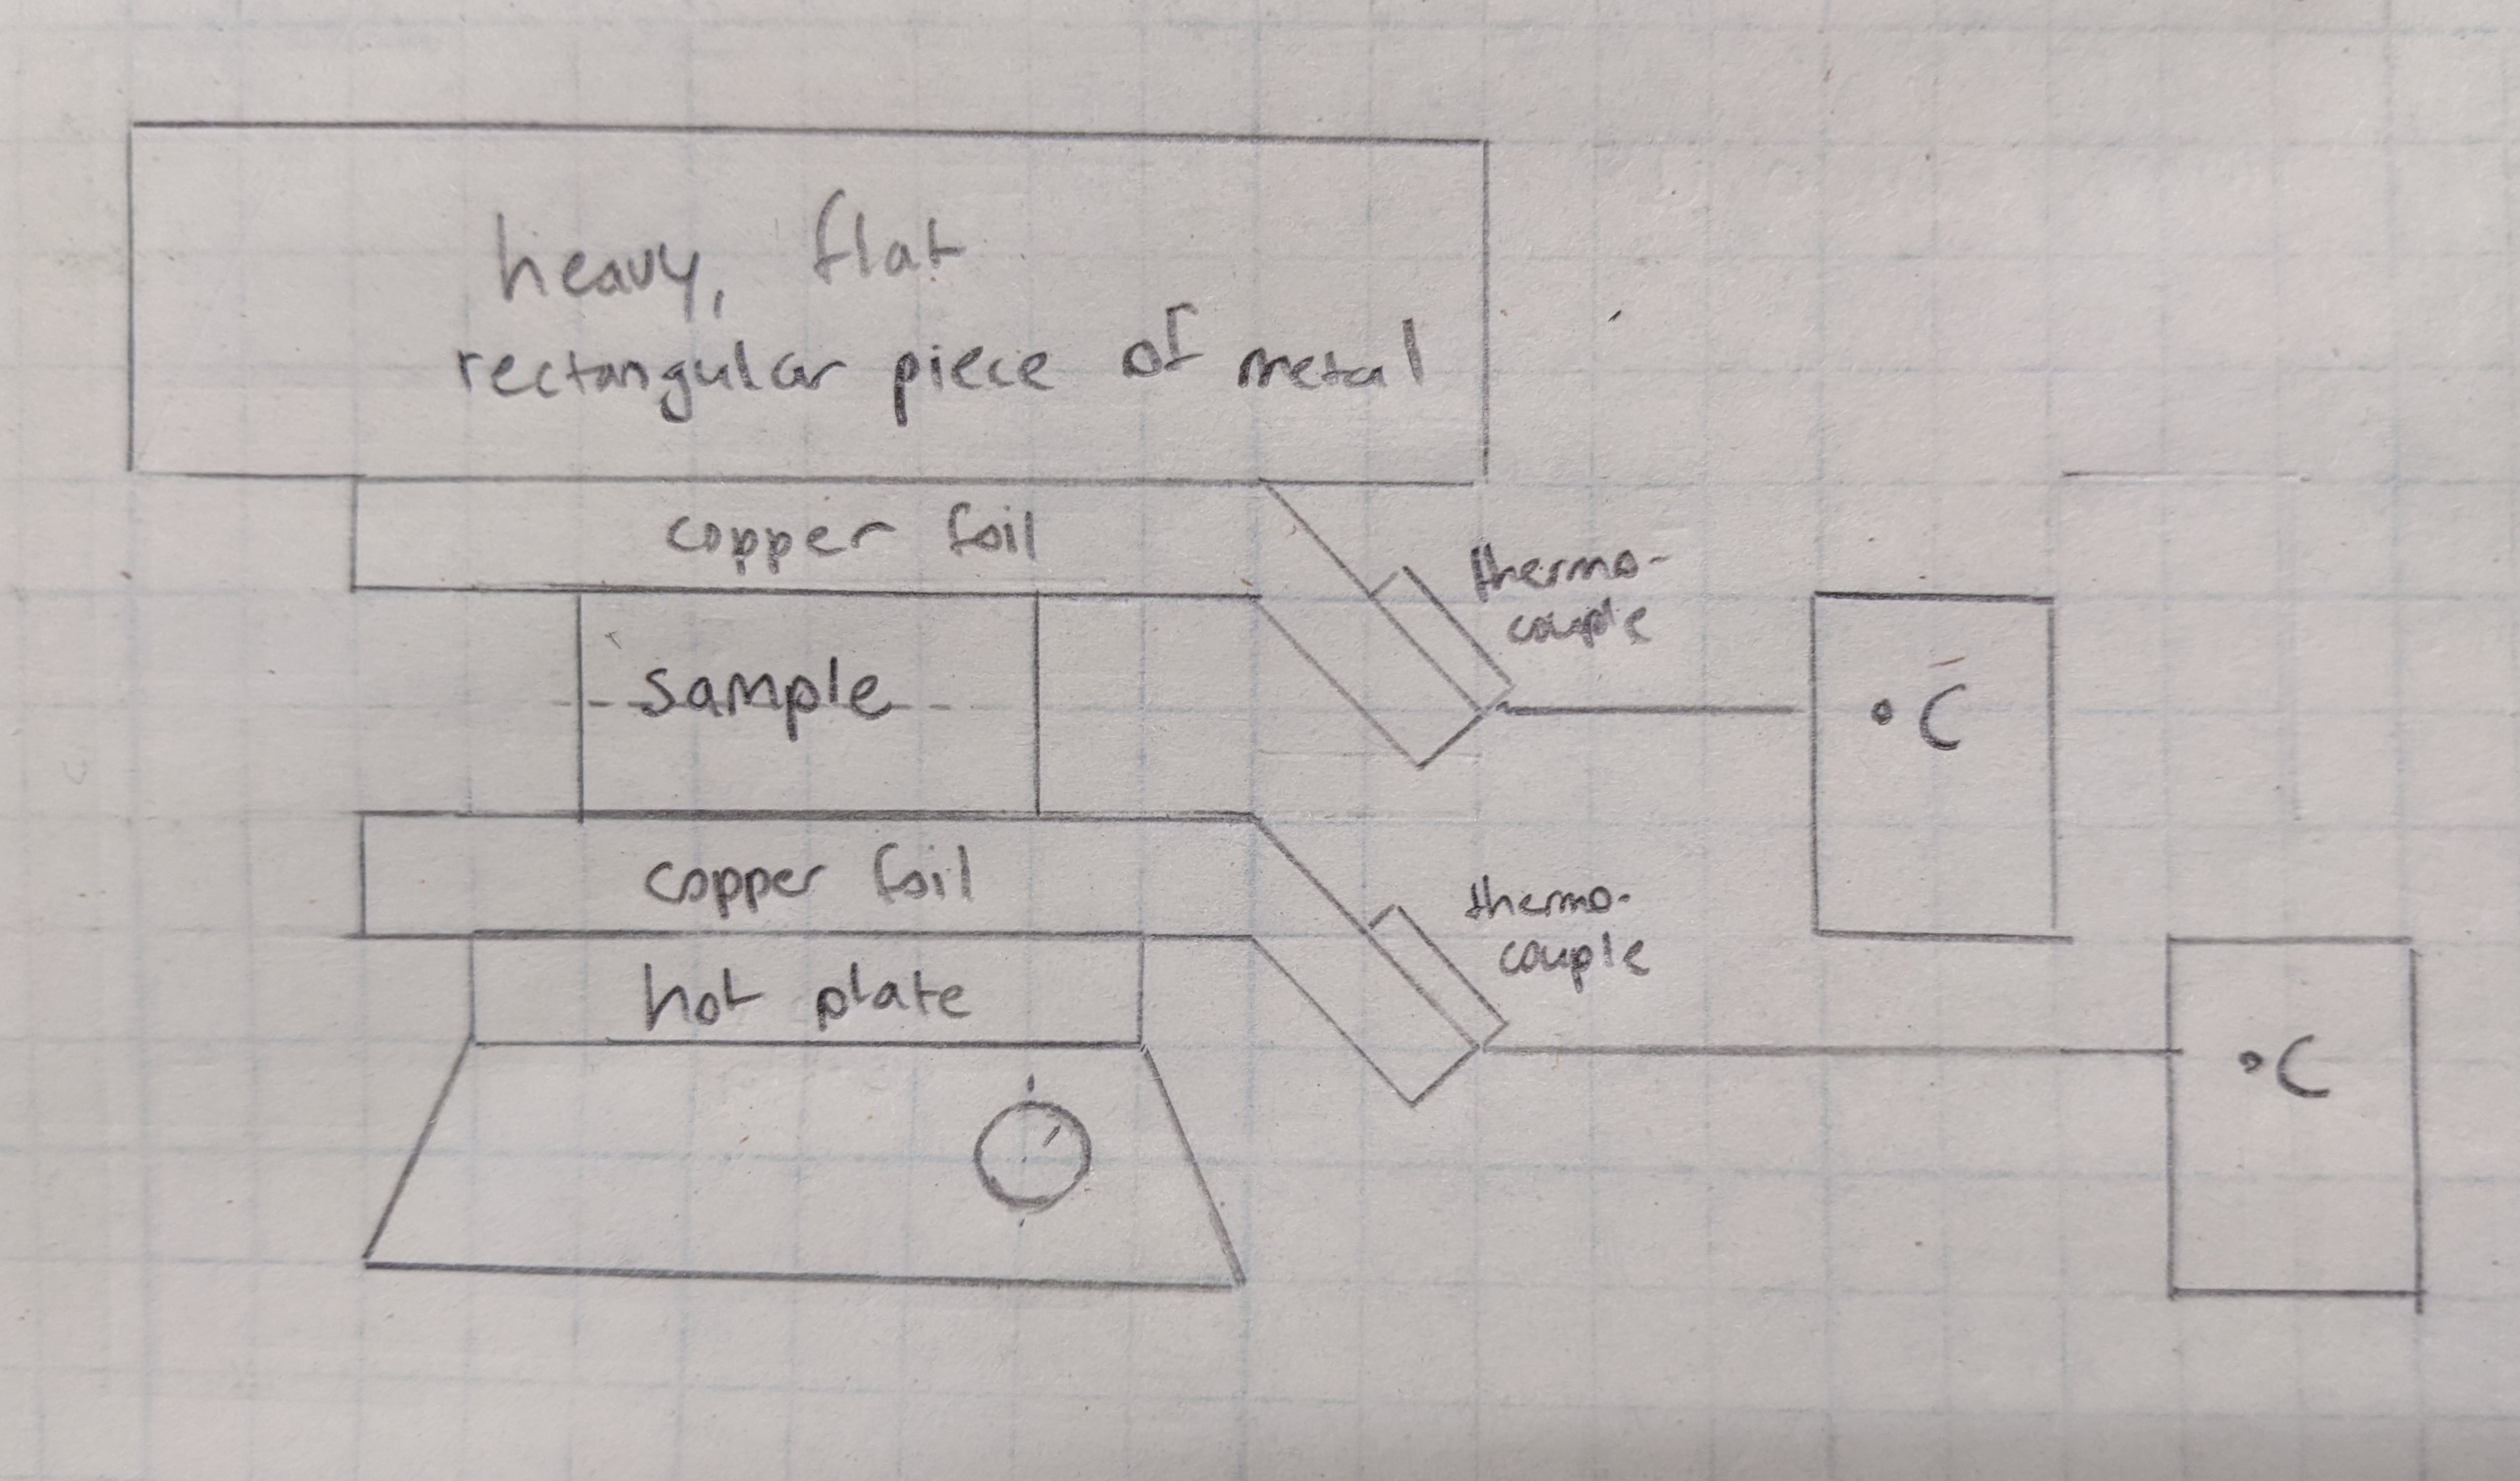 heavy, flat
rectangular piece of metal
copper foil
thermo-
couple
sample
°C
copper foil
thermo-
couple
hot plate
°C